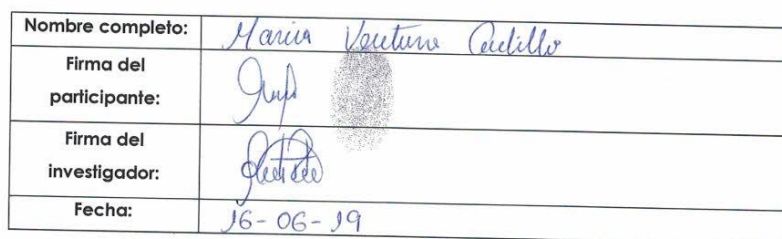 Nombre completo: Maria Ventura
Firma del
participante:
Firma del
investigador:
Fecha: 16-06-19